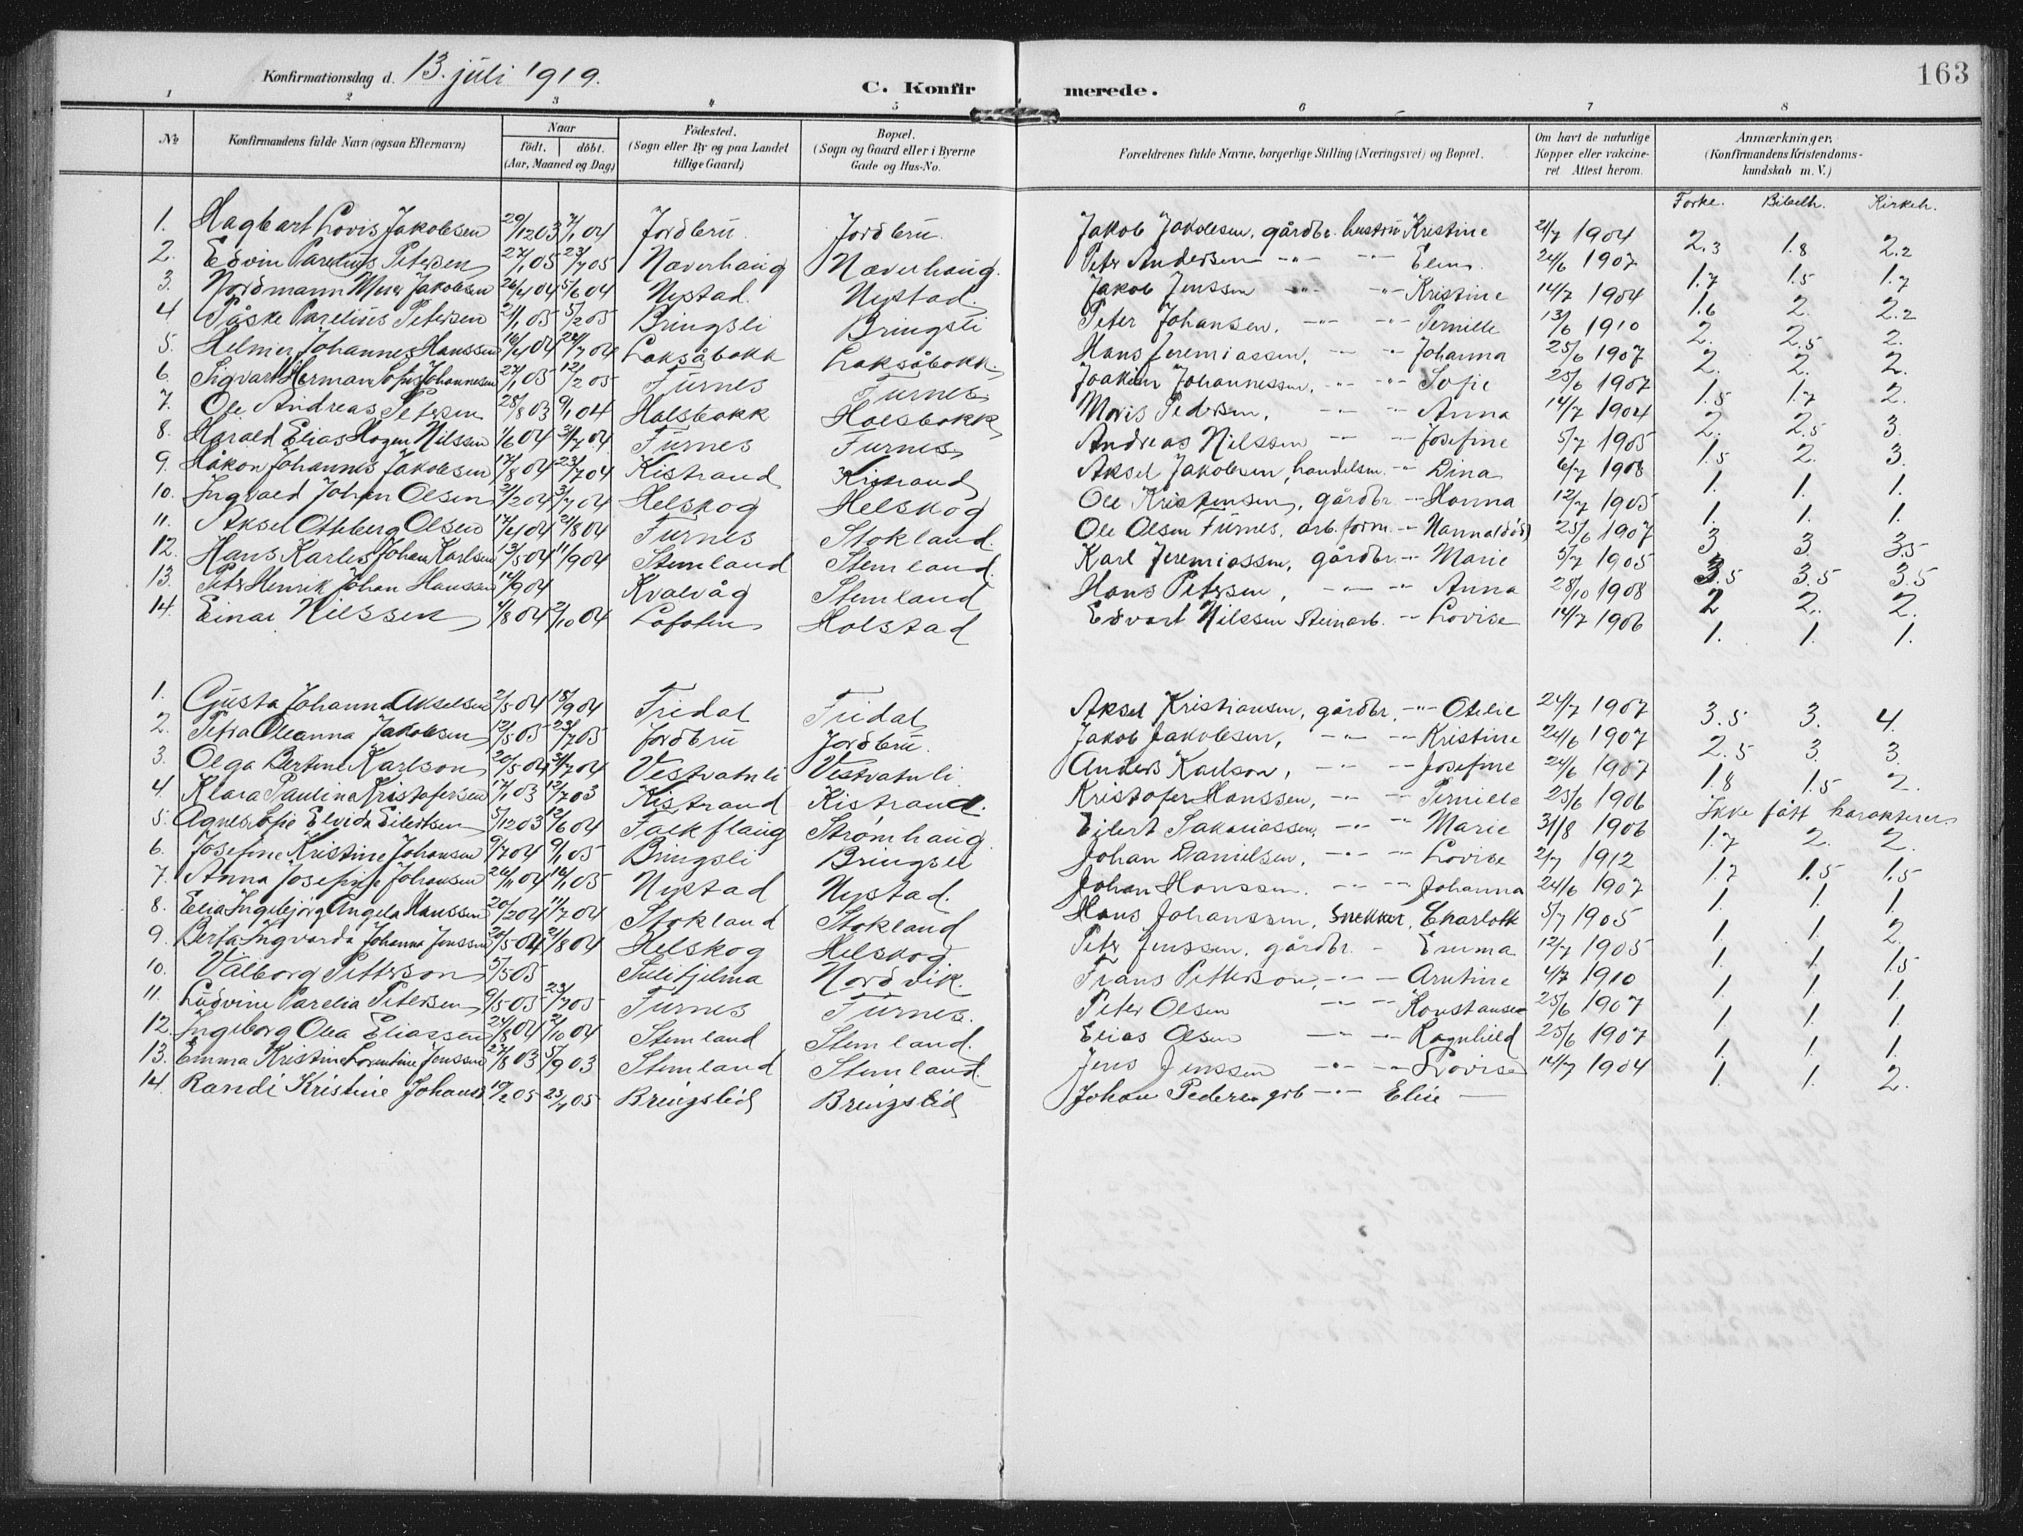 163
Konfirmationsdag d. 13. juli 1919.
C. Konfirmerede.
1 2 3 4 5 6 7 8
№ Konfirmandens fulde Navn (ogsaa Efternavn) Naar födt. döbt. (Aar, Maaned og Dag) Födested. (Sogn eller By og paa Landet tillige Gaard) Bopæl. (Sogn og Gaard eller i Byerne Gade og Hus-No. Forældrenes fulde Navne, borgerlige Stilling (Næringsvei) og Bopæl. Om havt de naturlige Kopper eller vakcineret Attest herom. Anmærkninger, (Konfirmandens Kristendomskundskab m. V.)
Forke. Bibelh. Kirkeh.
1. Hagbart Lovis Jakobsen 29/12 03 7/1 04 Jordbru. Jordbru. Jakob Jakobsen, gårdbr. hustru Kristine 21/7 1904 2.3 1.8 2.2
2. Edvin Parelius Petersen 27/1 05 23/7 05 Næverhaug Næverhaug. Peter Andersen -"- -"- Elen. 24/6 1907 1.7 1.5 1.7
3. Nordmann Meier Jakobsen 26/4 04 5/6 04 Nystad. Nystad. Jakob Jenssen -"- -"- Kristine 14/7 1904 1.6 2. 2.2
4 Påske Parelius Petersen 21/1 05 5/2 05 Bringsli Bringsli Peter Johansen, -"- -"- Pernille 13/6 1910 2. 2.5 2.
5. Helmer Johannes Hanssen 16/4 04 24/7 04 Laksåbakk Laksåbakk. Hans Jeremiassen, -"- -"- Johanna 25/6 1907 2. 2. 2.
6. Sigvart Herman Sofus Johannesen 27/1 05 12/2 05 Furnes Furnes Joakim Johannessen, -"- -"- Sofie 25/6 1907 1.5 1.7 2.
7. Ole Andreas Petersen 28/8 03 9/1 04 Halsbakk Halsbakk Moris Pedersen, -"- -"- Anna 14/7 1904 2. 2.5 3.
8. Harald Elias Hagen Nilssen 1/6 04 31/7 04 Furnes Furnes Andreas Nilssen -"- -"- Josefine 5/7 1905 1.5 2. 3.
9. Håkon Johannes Jakobsen 17/8 04 23/7 04 Kistrand Kistrand Aksel Jakobsen, handelsm. -"- Dina 6/7 1908 1. 1. 1.
10. Ingvald Johan Olsen 21/2 04 3/7 04 Helskog Helskog Ole Kristensen, gårdbr. -"- Hanna 12/7 1905 1. 1. 1.
11. Aksel Otheberg Olsen 17/4 04 21/8 04 Furnes Stokland. Ole Olsen Furnes, arb.form. -"- Nanna (död) 25/6 1907 3 3. 3.5
12. Hans Karles Johan Karlsen 13/5 04 11/9 04 Stemland Stemland. Karl Jeremiassen, gårdbr. -"- Marie 5/7 1905 3.5 3.5 3.5
13. Peter Henrik Johan Hanssen 14/9 04 Kvalvåg Stemland Hans Petersen, -"- -"- Anna 28/10 1908 2 2. 2.
14. Einar Nilssen 4/8 04 2/10 04 Lofoten Holstad Edvart Nilssen Steinarb. -"- Lovise 14/7 1906 1. 1. 1.
1. Gjusta Johanna Akselsen 2/5 04 18/9 04 Fridal Fridal Aksel Kristiansen, gårdbr. -"- Otelie 24/7 1907 3.5 3. 4.
2. Petra Oleanna Jakobsen 12/5 05 23/7 05 Jordbru Jordbru. Jakob Jakobsen, -"- -"- Kristine 24/6 1907 2.5 3. 3.
3. Olga Bertine Karlson 20/5 04 31/7 04 Vestvatnli Vestvatnli Anders Karlson, -"- -"- Josefine 24/6 1907 1.8 1.5 2.
4. Klara Pauline Kristofersen 17/1 03 12/7 03 Kistrand Kistrand. Kristofer Hanssen, -"- -"- Pernille 25/6 1906 Ikke fått karakterer
5. Agnes Sofie Elvida Eilertsen 5/12 03 12/6 04 Falkflaug Strømhaug. Eilert Sakariassen, -"- -"- Marie 31/8 1906 1.7 2. 2.
6. Josefine Kristine Johansen 9/7 04 9/1 05 Bringsli Bringsli Johan Danielsen, -"- -"- Lovise 2/7 1912 1.7 1.5 1.5
7. Anna Josefine Johansen 26/11 04 16/1 05 Nystad Nystad. Johan Hanssen. -"- -"- Johanna 24/6 1907 1. 1. 1.
8. Elia Ingebjörg Angela Hanssen 20/2 04 11/7 04 Stokland Stokland Hans Johanssen, Snekker, Charlotte 5/7 1905 1. 1. 2.
9. Berta Ingvarda Johanna Jenssen 20/5 04 21/8 04 Helskog Helskog. Peter Jenssen, gårdbr. - Emma 12/7 1905 1. 1. 1.5
10. Valborg Petterson 5/5 05 Sulitjelma Nordvik. Frans Petterson, -"- -"- Arntine 4/7 1910 1. 1. 1.
11. Ludvine Parelia Petersen 9/5 05 23/7 05 Furnes Furnes. Peter Olsen -"- -"- Konstanse 25/6 1907 1. 1. 1.
12. Ingeborg Olea Eliassen 24/8 04 2/10 04 Stemland Stemland. Elias Olsen -"- -"- Ragnhild 25/6 1907 1. 1. 1.
13. Emma Kristine Lorentine Jenssen 27/8 03 5/9 03 Stemland Stemland. Jens Jenssen -"- -"- Lovise 14/7 1904 1. 1. 2.
14. Randi Kristine Johans. 19/2 05 23/4 05 Bringslid Bringslid Johan Pedersen grb -"- Elise —